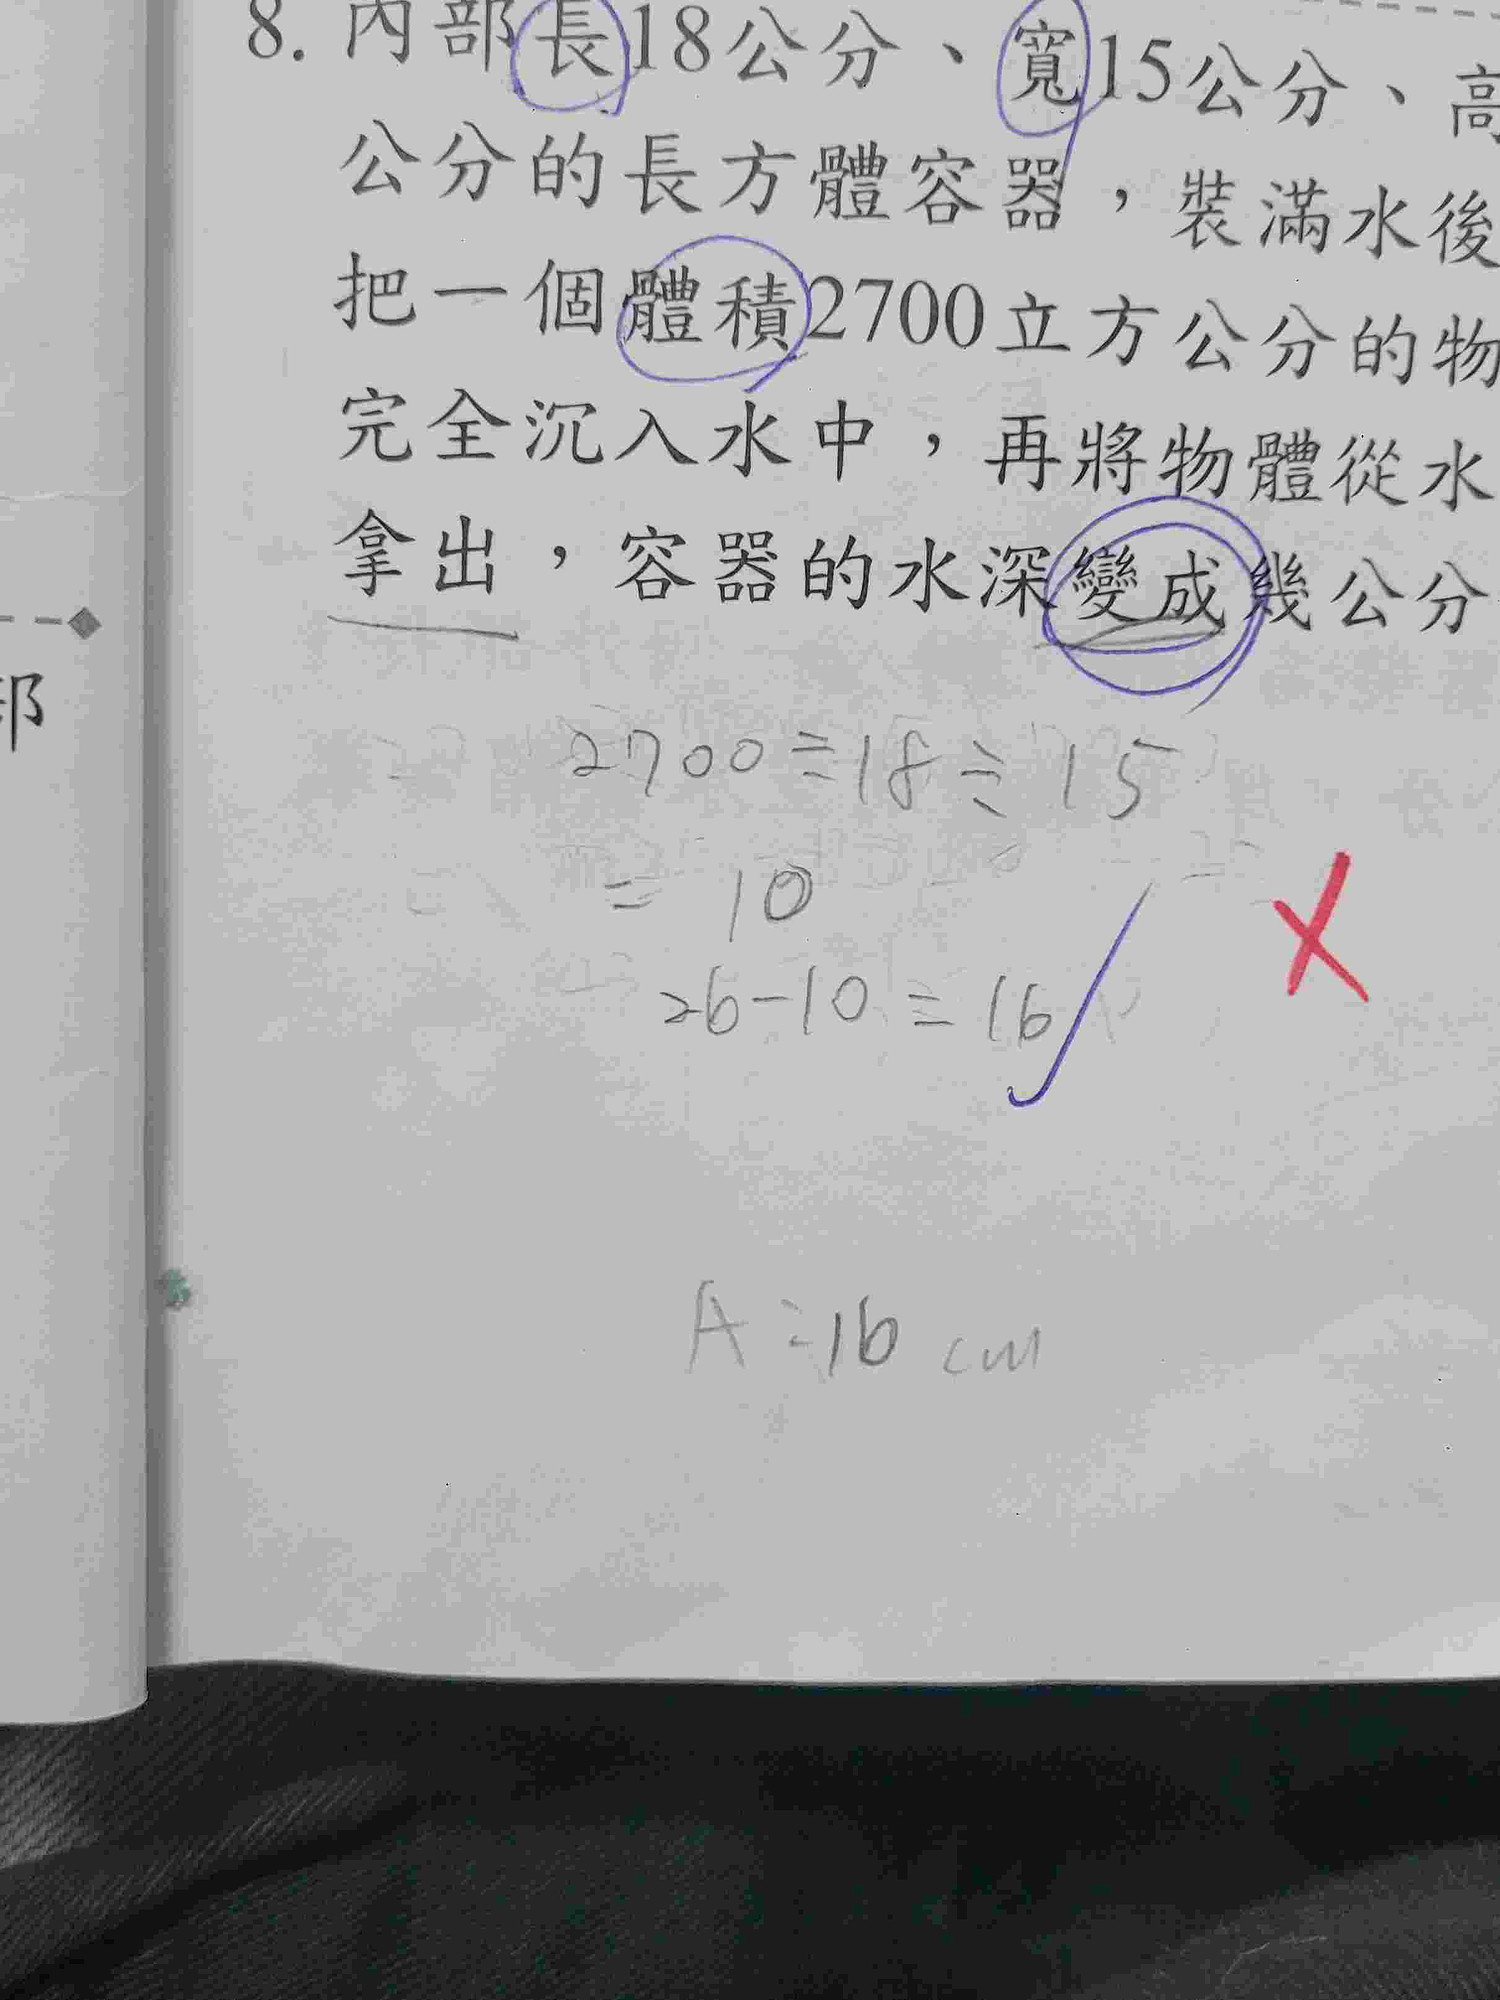 8. 內部長18公分、寬15公分、高
公分的長方體容器，裝滿水後
把一個體積2700立方公分的物
完全沉入水中，再將物體從水
拿出，容器的水深變成幾公分
部
2700÷18÷15
= 10
26-10=16
A:16 cm